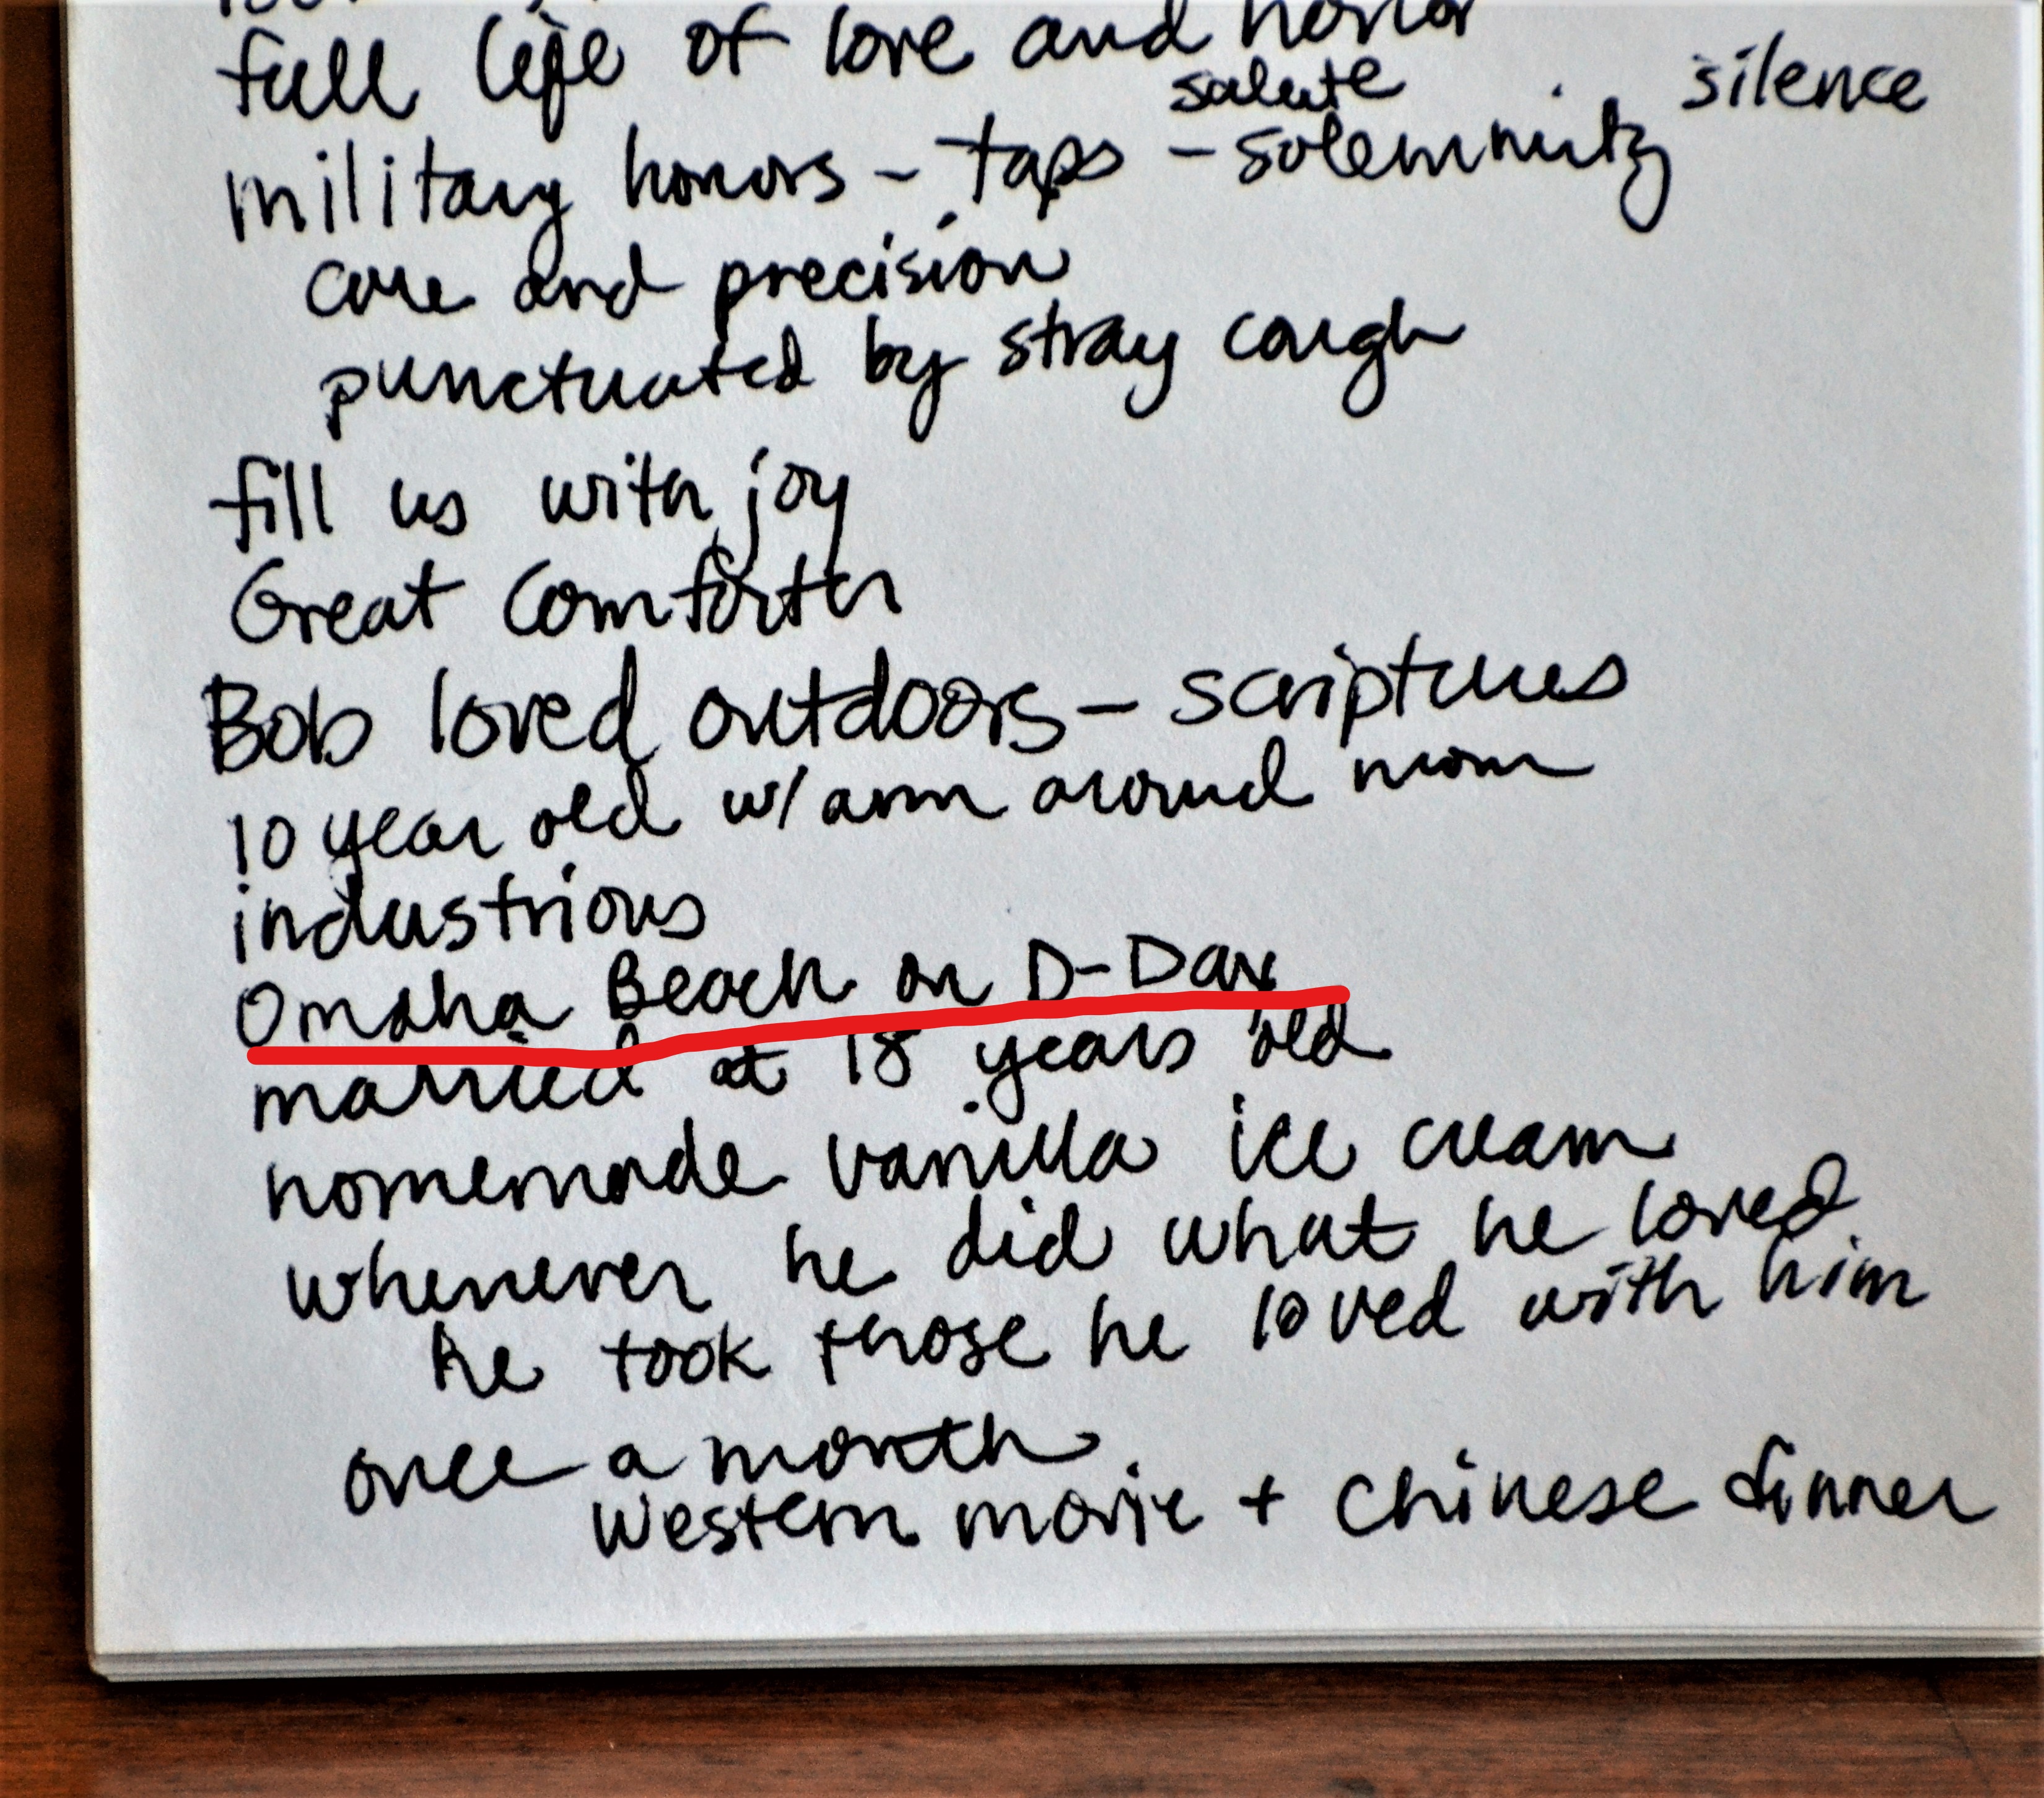 full life of love and honor
salute silence
military honors - taps - solemnity
care and precision
punctuated by stray cough
fill us with joy
Great Comforter
Bob loved outdoors - scriptures
10 year old w/ arm around mom
industrious
Omaha Beach on D-Day
married at 18 years old
homemade vanilla ice cream
whenever he did what he loved
he took those he loved with him
once a month
Western movie + Chinese dinner